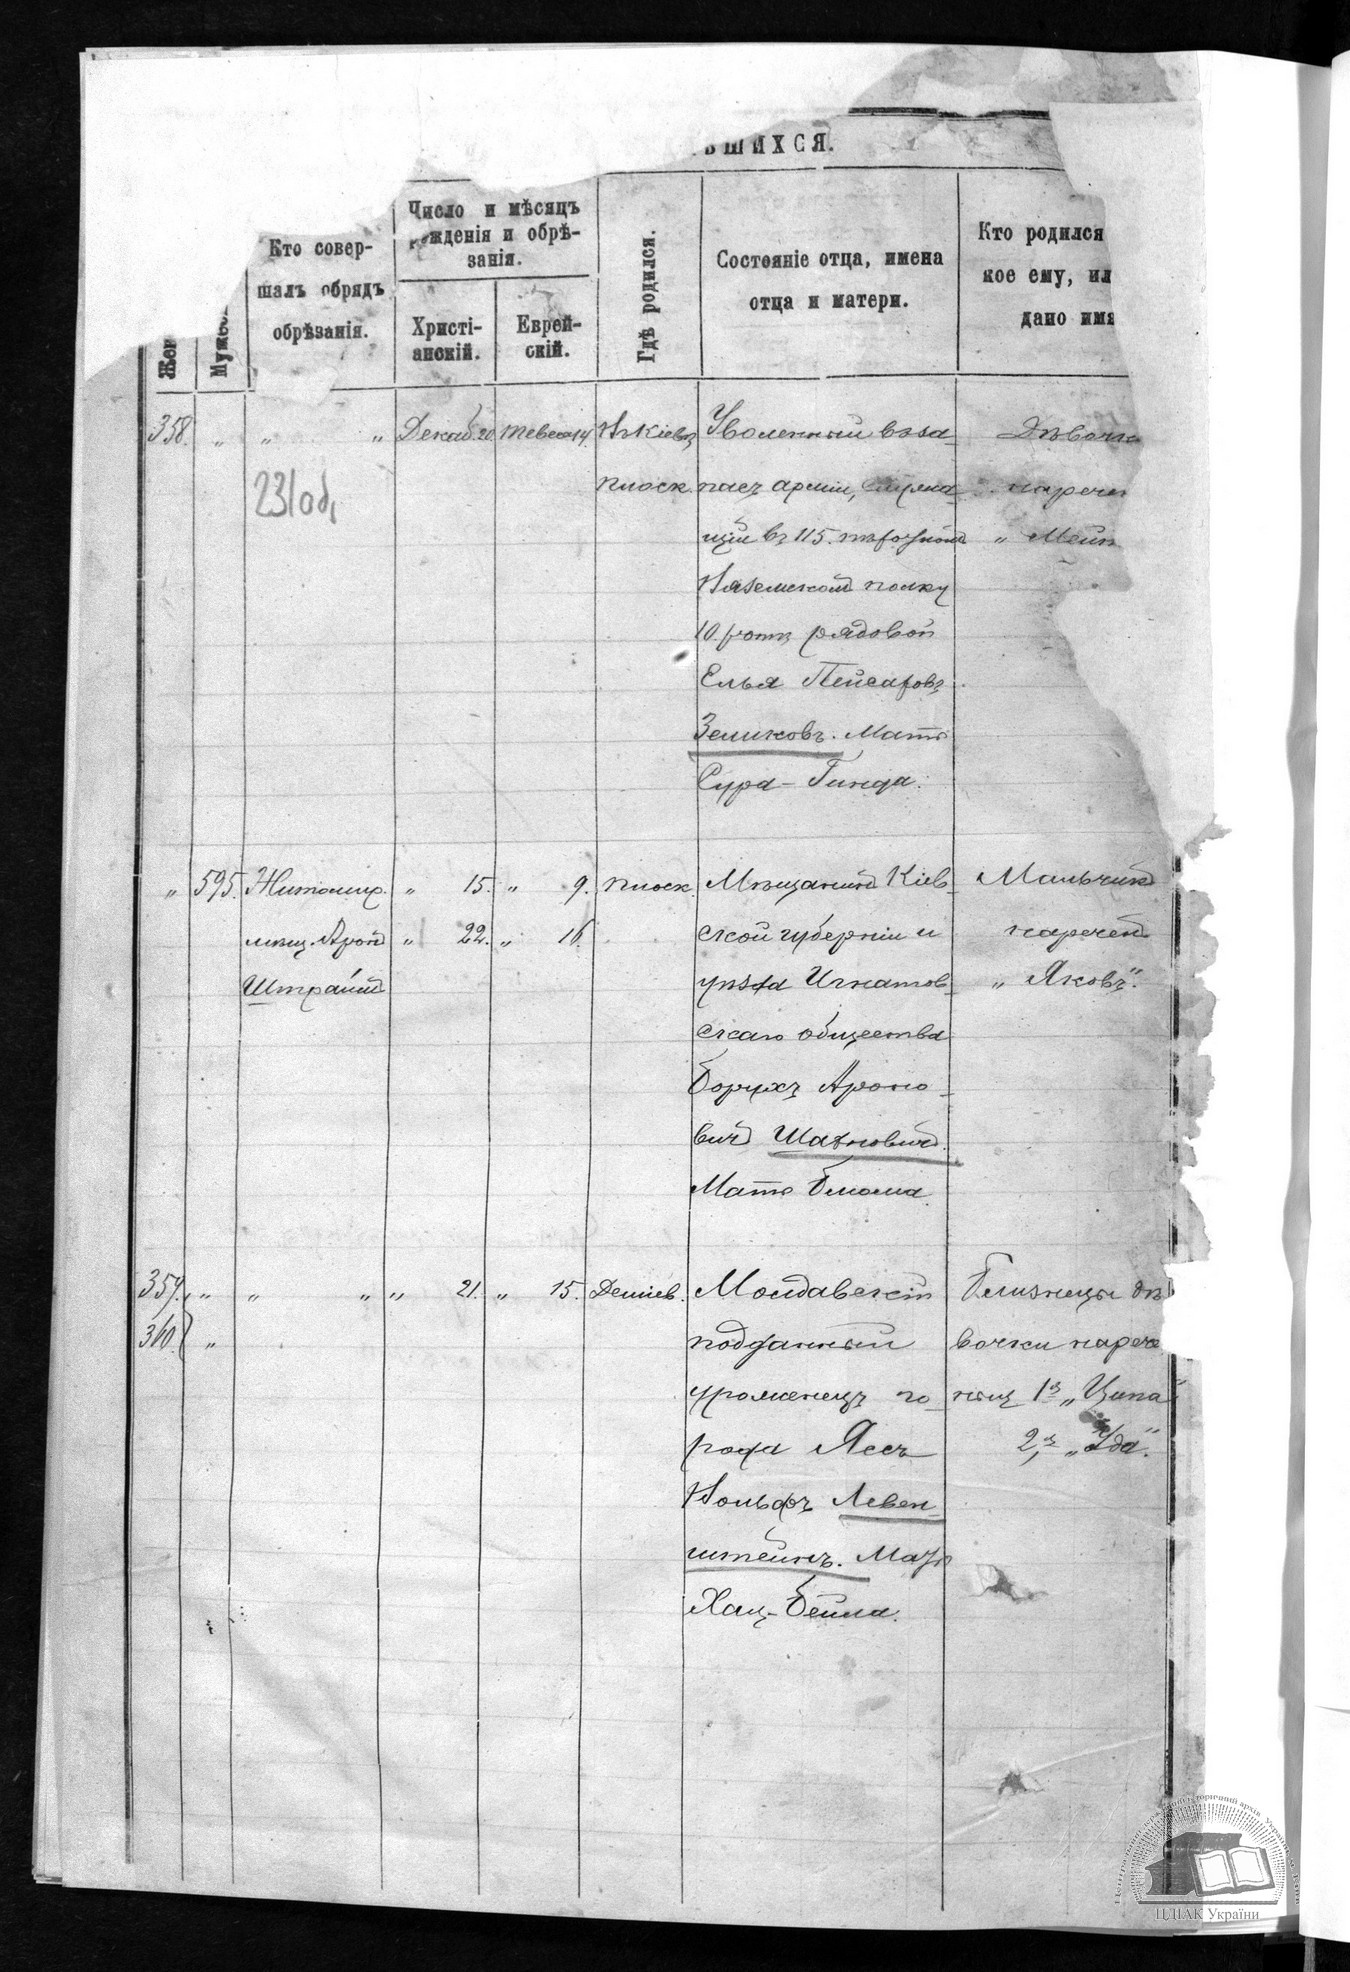 ВШИХСЯ.
Жен
Мужес
Кто совер-
шалъ обрядъ
обрѣзанія.
Число и мѣсяцъ
рожденія и обрѣ-
занія.
Христі-
анскій.
Еврей-
скій.
Гдѣ родился.
Состояніе отца, имена
отца и матери.
Кто родился
кое ему, ил
дано имя
358. „ „ „ Декаб. 20. Тевеса 14. Въ Кіевѣ Уволенный въ за-
плоск. пасъ арміи, служа-
щій въ 115. пѣхотномъ
Вяземскомъ полку
10. ротѣ рядовой
Елья Пейсаховъ
Зеликовъ. Мать
Сура-Гинда.
Дѣвочк
нарече
„ Мейн
231 об,
„ 595. Житомир. „ 15. „ 9. Плоск. Мѣщанинъ Кіев-
мѣщ. Аронъ „ 22. „ 16. ской губерніи и
Штраймъ уѣзда Игнатов-
скаго общества
Борухъ Ароно-
вичъ Шахновичъ.
Мать Блюма
Мальчикъ
нареченъ
„ Яковъ".
359. „ „ „ „ 21. „ 15. Деміев. Молдавскій
360. „ подданный
уроженецъ го-
рода Яссъ
Вольфъ Левен-
штейнъ. Мать
Хая-Бейла.
Близнецы дѣ
вочки нарече
ны 1я „Ципа"
2,я „Ида".
ЦДІАК України